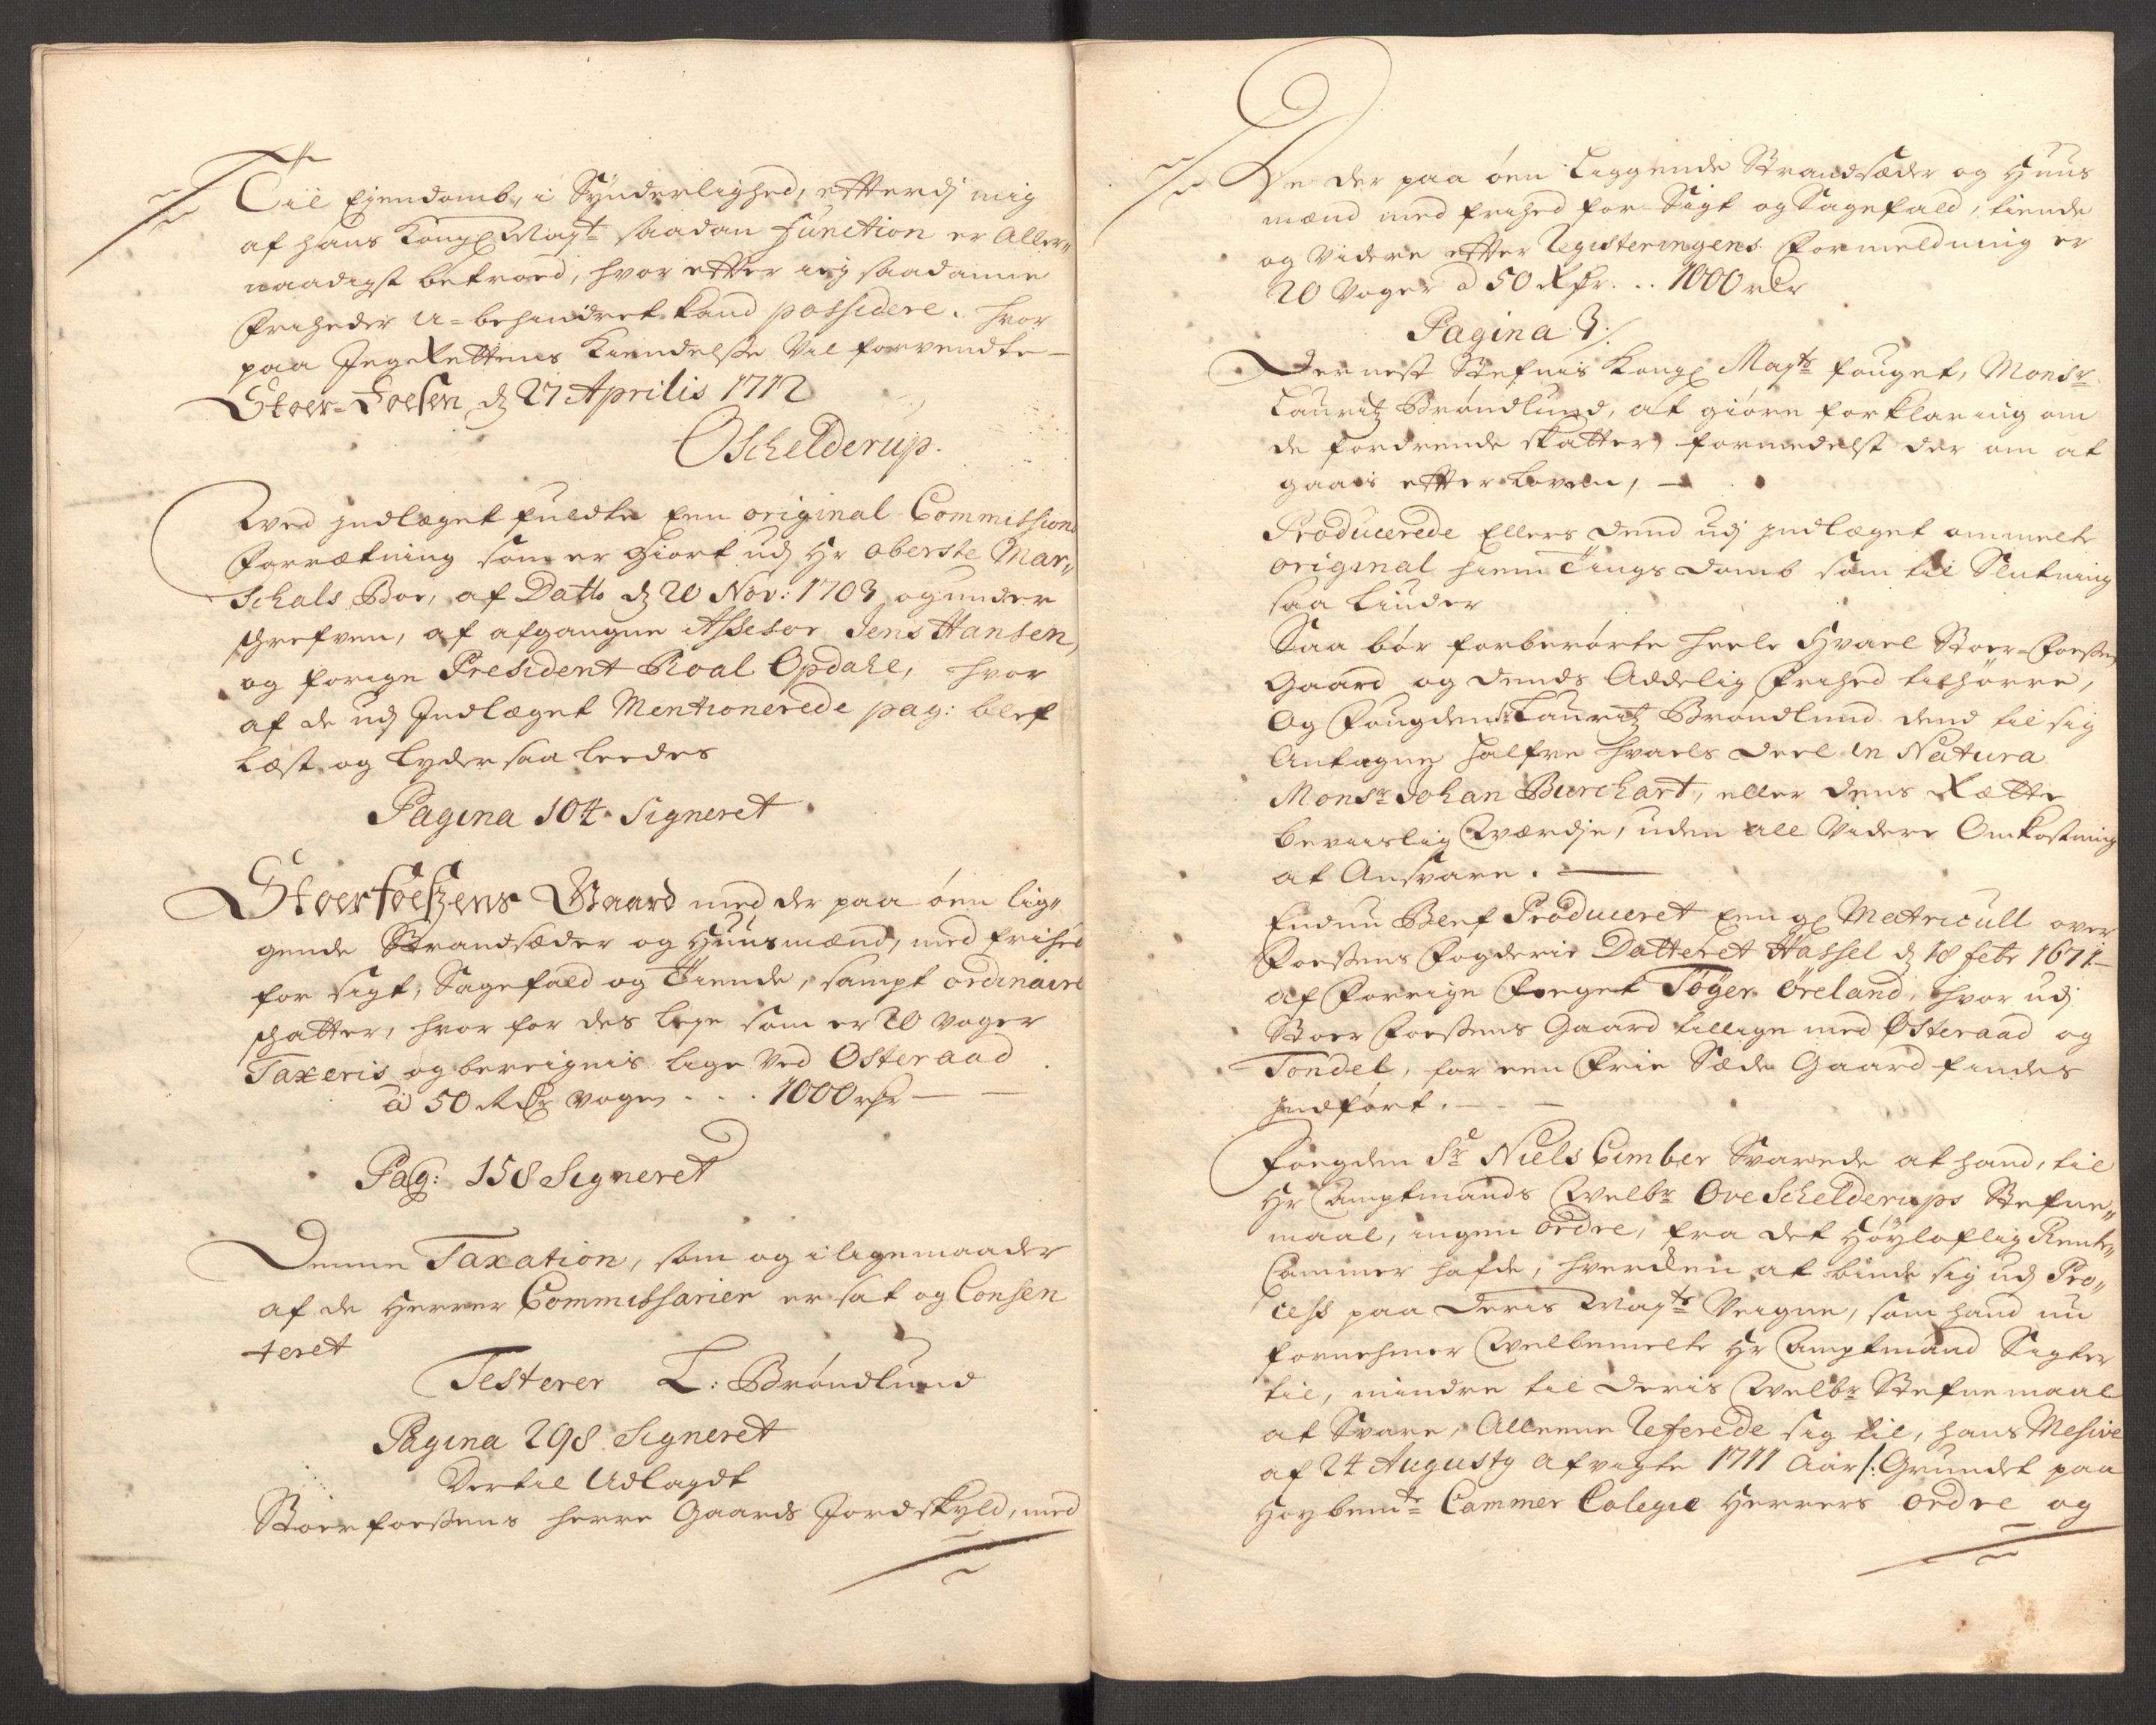 Til Ejendomb, i Synderlighed, efterdj mig
af hans Kongl Mayts saadan Function er Aller„
naadigst betroed, hvor efter ieg saadanne
Friheder u-behindret kand possidere. hvor
paa Jeg Rettens Kiendelse vil forvendte —
Stoer-Foesen d 27 Aprilis 1712
OSchelderup.
Wed indlæget fuldte een original Commissions
Forrætning som er giort udj Hr oberste Mar„
schals Boe, af Datto d 20 Nov: 1703 og under
schrefven, af afgangne Assesor Jens Hansen,
og forige President Roal Opdahl, hvor
af de udj Indlæget Mentionerede pag: blef
læst og lyder saa leedes
Pagina 104 Signeret
Stoerfoesens Gaard med der paa øen lig„
gende Strandsæder og Huusmænd, med frihed
for sigt, Sagefald og Tiende, sampt ordinaire
schatter, hvor for des leje som er 20 voger
Taxeris og bereignis lige ved Østeraad
a 50 Rdr vogen . . . 1000 rdr —
Pag: 158 Signeret
Denne Taxation, som og i lige maader
af de Herrer Commissarier er sat og Consen
teret
Testerer L: Brøndlund
Pagina 298 Signeret
Dertil Udlagdt
Stoerfoesens herre Gaards Jordskyld, med
De der paa øen liggende Strandsæder og Huus
mænd med frihed for Sigt og Sagefald, tiende
og videre efter Registeringens Formeldning er
20 Voger a 50 Rdr. . . 1000 rdr
Pagina 3:/
Dernest Stefnis Kongl Mayts fouget, Monsr
Lauritz Brøndlund, at giøre forklaring om
de fordrende skatter, formedelst der om at
gaais efter Loven, —
Producerede Ellers dend udj indlæget ommelte
original hiem Tings domb som til Slutning
saa liuder
Saa bør forberørte heele Hvael Stoer-Foesen
Gaard og dends Addelig Frihed tilhørre,
Og Fougden Lauritz Brøndlund dend til sig
Antagne halfve hvaels deel in Natura
Monsr Johan Burchart, eller dens Rætte
beviislig Værdje, uden all videre Omkostning
at Ansvare. —
Endnu Blef Produceret Een gl Matricull over
Foesens Fogderie Datteret Hassel d 18 febr 1671 —
af Forrige Foeget Tøger Øreland, hvor udj
Stoer Foesens Gaard tillige med Østeraad og
Tondel, for een Frie Sæde Gaard findes
indført. —
Foegden Sr Niels Cimber Svarede at hand, til
Hr Amptmands Welbr Ove Schelderups Stefne„
maal, ingen ordre, fra det Høyloflig Rente„
Cammer hafde, hverden at binde sig udj Pro„
cess paa deris Mayts Veigne, som hand nu
fornehmer Welbemelte Hr Amptmand Sigter
til, mindre til deris Welbr Stefnemaal
at Svare, Alleene Referede sig til, hans Mesive
af 24 Augusty afvigte 1711 Aar /: Grundet paa
Høybemte Cammer Colegie Herrers ordre og